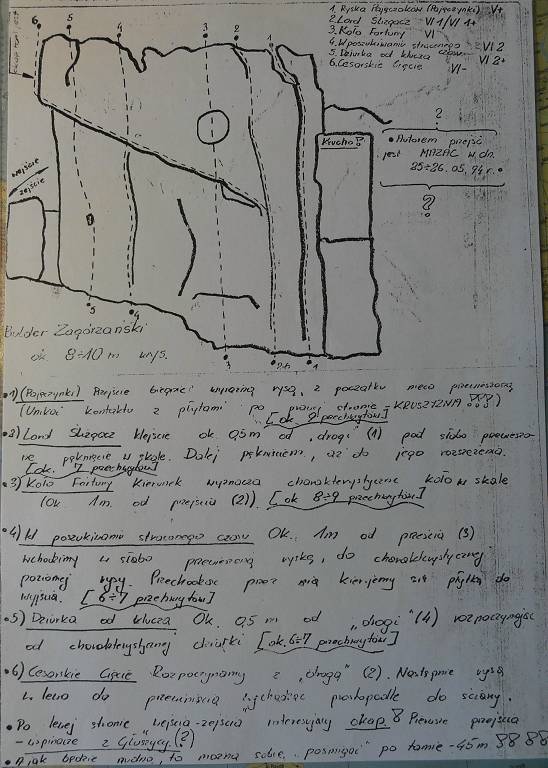 1. Ryska Pajęczaków (Pajęczynki) V+
2. Lord Ślizgacz VI 1/VI 1+
3. Koło Fortuny VI
4. W poszukiwaniu straconego czasu VI 2
5. Dziurka od klucza VI 2+
6. Cesarskie Cięcie VI-
6 5 4 3 2 1
?
Krucho !
• Autorem przejść
jest MAZAC w dn.
25÷26. 05. 94 r. •
?
wejście
zejście
5 4
3 2,6 1
Bulder Zagórzański
ok 8÷10 m wys.
• 1) (Pajęczynki) Przejście biegnące wyraźną rysą, z początku nieco przewieszoną
(Unikać kontaktu z płytami po prawej stronie - KRUSZYZNA !!!)
[ok 9 przechwytów]
• 2) Lord Ślizgacz Wejście ok. 0,5 m od „drogi” (1) pod słabo przewieszo-
ne pęknięcie w skale. Dalej pęknięciem, aż do jego rozszerzenia.
[ok. 7 przechwytów]
• 3) Koło Fortuny Kierunek wyznacza charakterystyczne koło w skale
(Ok. 1m. od przejścia (2)). [ok 8÷9 przechwytów]
• 4) W poszukiwaniu straconego czasu Ok. 1m od przejścia (3)
wchodzimy w słabo przewieszoną ryskę, do charakterystycznej
poziomej rysy. Przechodząc przez nią kierujemy się płytką do
wyjścia. [6÷7 przechwytów]
• 5) Dziurka od klucza Ok. 0,5 m od „drogi” (4) rozpoczynając
od charakterystycznej dziurki [ok. 6÷7 przechwytów]
• 6) Cesarskie Cięcie Rozpoczynamy z „drogą” (2). Następnie rysą
w lewo do przewinięcia wychodząc prostopadle do ściany.
• Po lewej stronie wejścia-zejścia interesujący okap ! Pierwsze przejścia
- wspinacze z Głuszycy. (?)
• A jak będzie nudno, to można sobie „pośmigać” po tamie - 45m !!!!